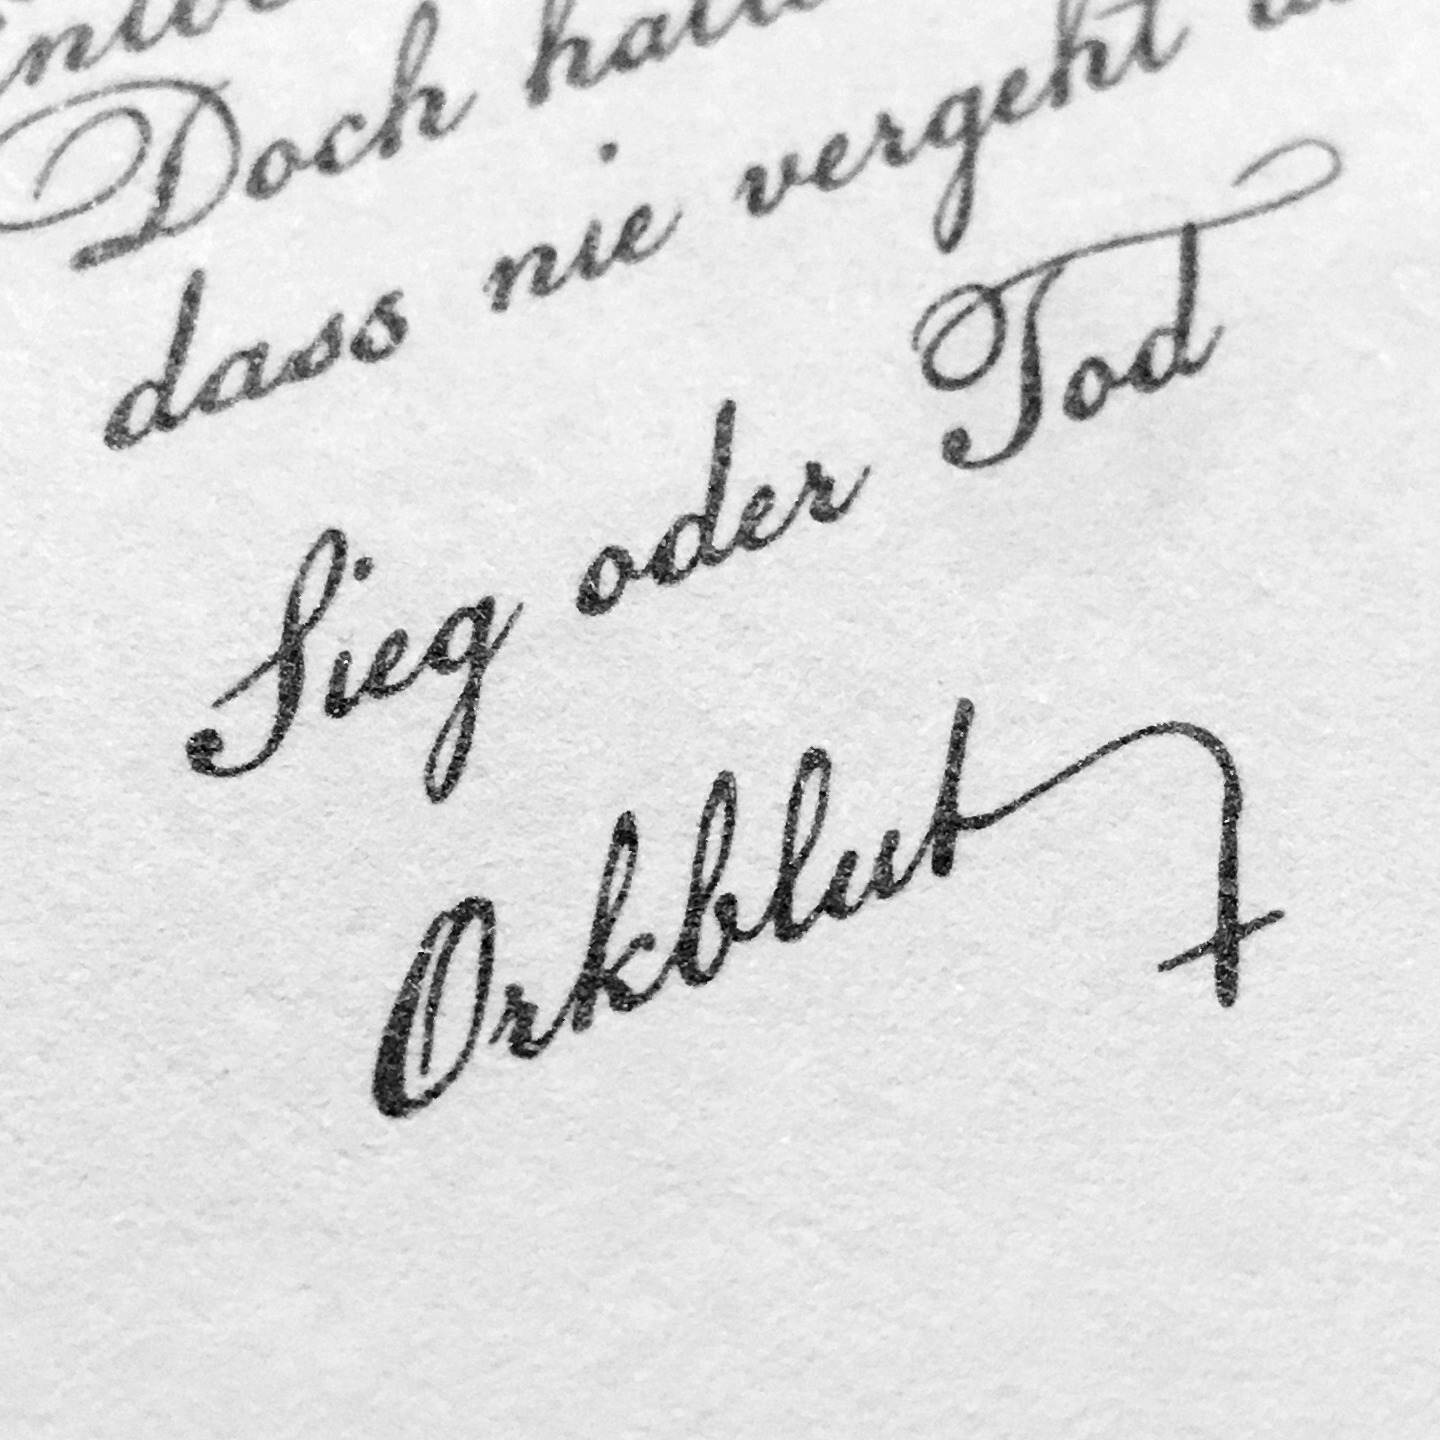 Doch
dass nie vergeht
Sieg oder Tod
Orkblut